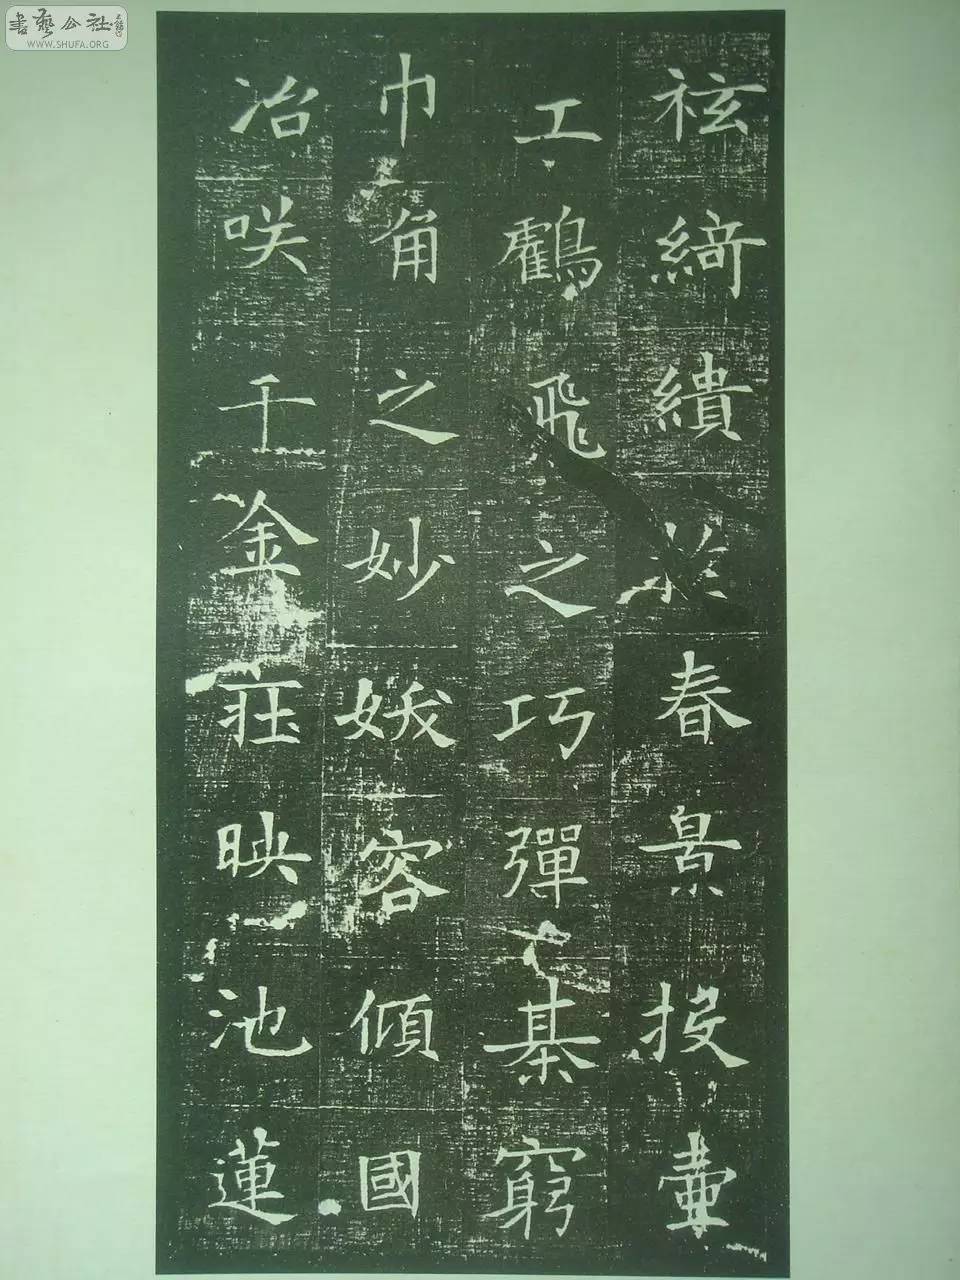 書藝公社
WWW.SHUFA.ORG
袨綺繢於春景投壷
工鸖飛之巧彈棊窮
巾角之妙妙娥容傾國
冶咲千金莊映池蓮